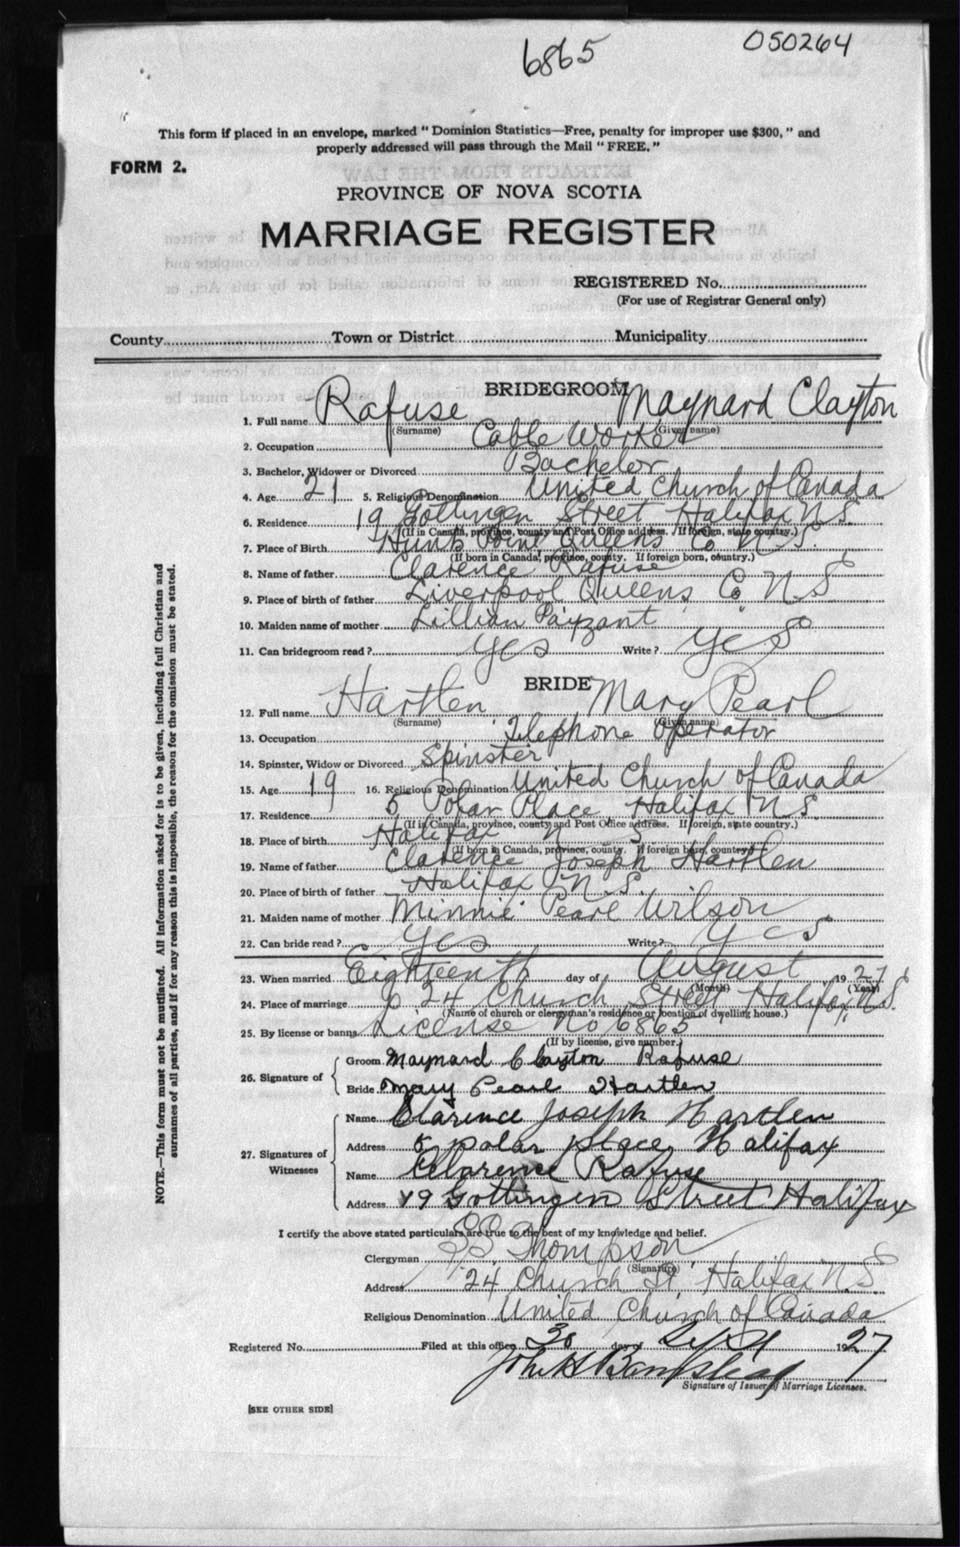 6865
050264
This form if placed in an envelope, marked "Dominion Statistics—Free, penalty for improper use $300," and
properly addressed will pass through the Mail "FREE."
FORM 2.
PROVINCE OF NOVA SCOTIA
MARRIAGE REGISTER
REGISTERED No.
(For use of Registrar General only)
County Town or District Municipality
BRIDEGROOM
1. Full name Rafuse Maynard Clayton
(Surname) (Given name)
2. Occupation Cable Worker
3. Bachelor, Widower or Divorced Bachelor
4. Age 21 5. Religious Denomination United Church of Canada
6. Residence 19 Gottingen Street Halifax N.S.
(If in Canada, province, county and Post Office address. If foreign, state country.)
7. Place of Birth Hunts Point Queens Co N.S.
(If born in Canada, province, county. If foreign born, country.)
8. Name of father Clarence Rafuse
9. Place of birth of father Liverpool Queens Co NS
10. Maiden name of mother Lillian Payzant
11. Can bridegroom read? Yes Write? Yes
BRIDE
12. Full name Hartlen Mary Pearl
(Surname) (Given name)
13. Occupation Telephone Operator
14. Spinster, Widow or Divorced Spinster
15. Age 19 16. Religious Denomination United Church of Canada
17. Residence 5 Polar Place Halifax N.S.
(If in Canada, province, county and Post Office address. If foreign, state country.)
18. Place of birth Halifax N S
(If born in Canada, province, county. If foreign born, country)
19. Name of father Clarence Joseph Hartlen
20. Place of birth of father Halifax N.S.
21. Maiden name of mother Minnie Pearl Wilson
22. Can bride read? Yes Write? Yes
23. When married Eighteenth day of August 1927
(Month) (Year)
24. Place of marriage 24 Church Street Halifax, N.S.
(Name of church or clergyman's residence or location of dwelling house.)
25. By license or banns License No 6865
(If by license, give number.)
26. Signature of
Groom Maynard Clayton Rafuse
Bride Mary Pearl Hartlen
27. Signatures of Witnesses
Name Clarence Joseph Hartlen
Address 5 Polar place Halifax
Name Clarence Rafuse
Address 19 Gottingen Street Halifax
I certify the above stated particulars are true to the best of my knowledge and belief.
Clergyman Thompson
(Signature)
Address 24 Church St. Halifax N.S.
Religious Denomination United Church of Canada
Registered No. Filed at this office 30 day of Sept 1927
John H
Signature of Issuer of Marriage Licenses.
[SEE OTHER SIDE]
NOTE.—This form must not be mutilated. All information asked for is to be given, including full Christian and
surnames of all parties, and if for any reason this is impossible, the reason for the omission must be stated.